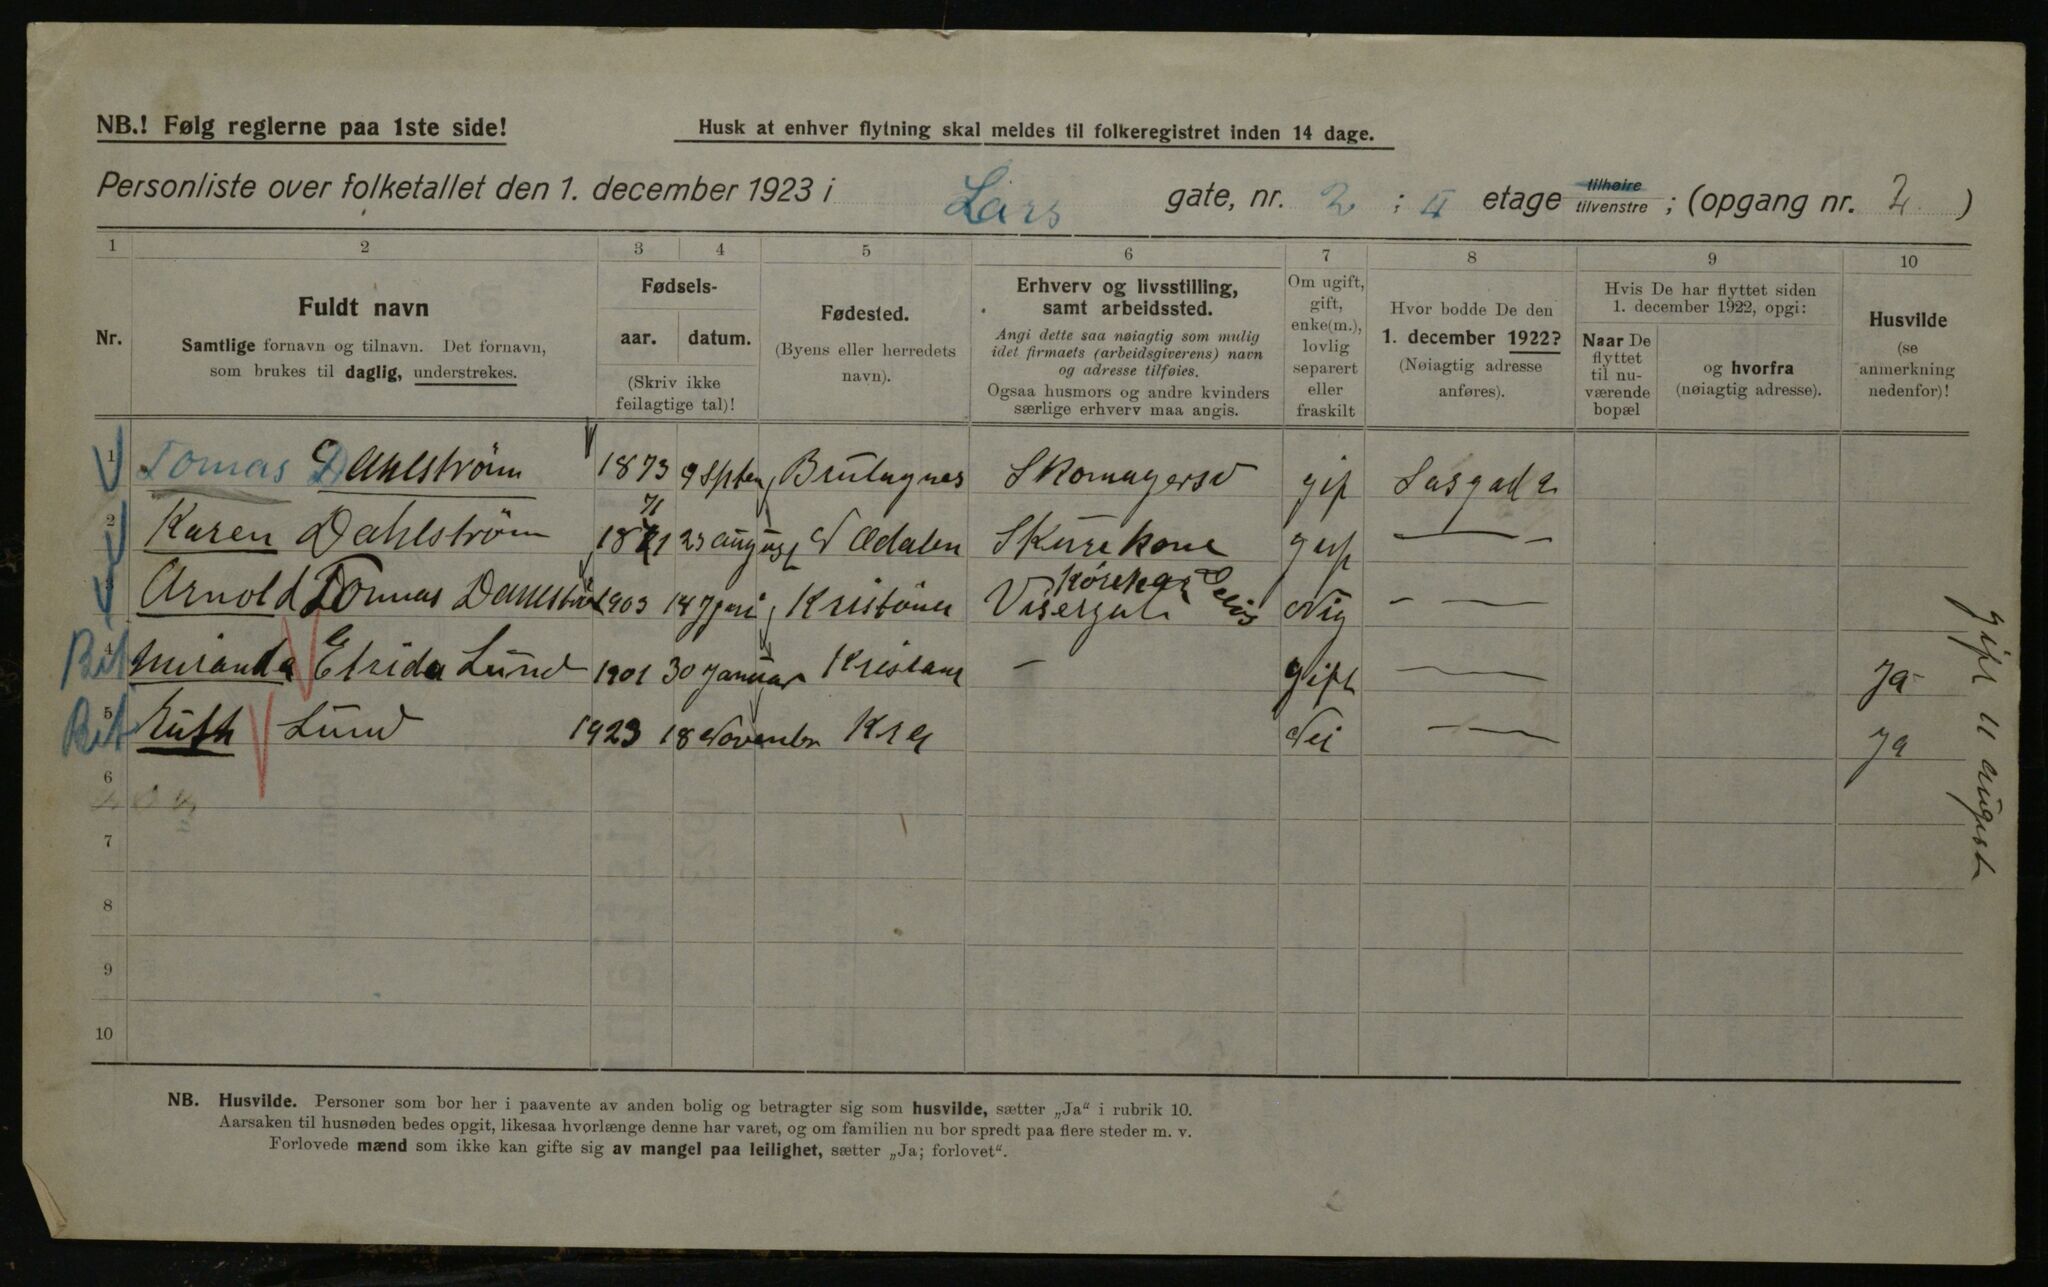 NB.! Følg reglerne paa 1ste side!
Husk at enhver flytning skal meldes til folkeregistret inden 14 dage.
Personliste over folketallet den 1. december 1923 i Lars gate, nr. 2 ; II etage tilhøire tilvenstre ; (opgang nr. 2 )
1 2 3 4 5 6 7 8 9 10
Nr.
Fuldt navn
Samtlige fornavn og tilnavn. Det fornavn,
som brukes til daglig, understrekes.
Fødsels-
aar. datum.
(Skriv ikke
feilagtige tal)!
Fødested.
(Byens eller herredets
navn).
Erhverv og livsstilling,
samt arbeidssted.
Angi dette saa nøiagtig som mulig
idet firmaets (arbeidsgiverens) navn
og adresse tilføies.
Ogsaa husmors og andre kvinders
særlige erhverv maa angis.
Om ugift,
gift,
enke(m.),
lovlig
separert
eller
fraskilt
Hvor bodde De den
1. december 1922?
(Nøiagtig adresse
anføres).
Hvis De har flyttet siden
1. december 1922, opgi:
Naar De
flyttet
til nu-
værende
bopæl
og hvorfra
(nøiagtig adresse).
Husvilde
(se
anmerkning
nedenfor)!
1 Tomas Dahlström 1873 9 Spten Skomagersv gif
2 Karen Dahlström 1871 71 23 august Skurekone —
3 Arnold Tomas Dahlström 1903 14 Visergut — —
4 Bit Miranda Elrida Lund 1901 30 Januar Kristans — gift — Ja
5 Bit Ruth Lund 1923 18 November Kra Nei — Ja
6
7
8
9
10
gift 11 august
NB. Husvilde. Personer som bor her i paavente av anden bolig og betragter sig som husvilde, sætter „Ja“ i rubrik 10.
Aarsaken til husnøden bedes opgit, likesaa hvorlænge denne har varet, og om familien nu bor spredt paa flere steder m. v.
Forlovede mænd som ikke kan gifte sig av mangel paa leilighet, sætter „Ja; forlovet“.